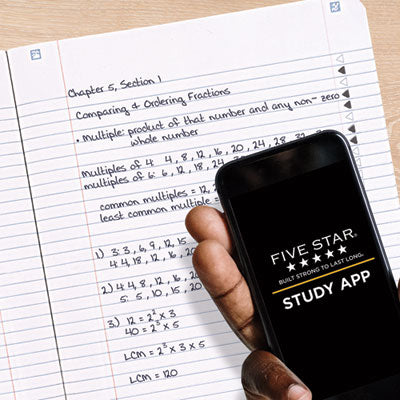 Chapter 5, Section 1
Comparing & Ordering Fractions
• Multiple: product of that number and any non-zero
whole number
multiples of 4: 4, 8, 12, 16, 20, 24, 28, 32,
multiples of 6: 6, 12, 18, 24,
common multiples = 12,
least common multiple =
1) 3: 3, 6, 9, 12, 15
4: 4, 8, 12, 16, 20
2) 4: 4, 8, 12, 16, 20
5: 5, 10, 15, 20
3) 12 = 2² x 3
40 = 2³ x 5
LCM = 2³ x 3 x 5
LCM = 120
FIVE STAR®
BUILT STRONG TO LAST LONG.
STUDY APP